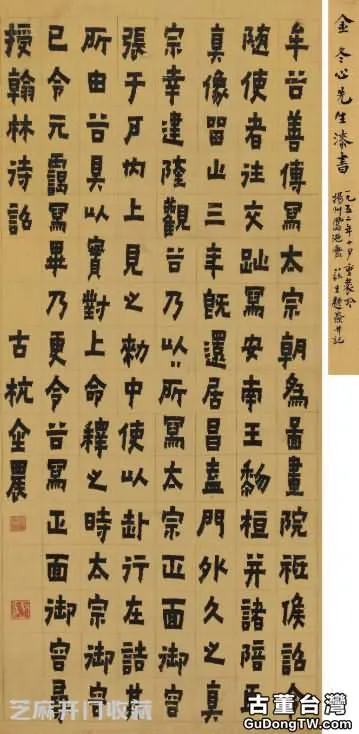 金冬心先生漆書
牟谷善傳寫太宗朝為圖畫院祗候詔令
随使者往交趾寫安南王黎桓并諸陪臣
真像留山三年既還居昌盍門外久之真
宗幸建隆觀谷乃以所寫太宗正面御容
張于戶内上見之勅中使以赴行在詰其
所由谷具以實對上命釋之時太宗御容
已令元靄寫畢乃更令谷寫正面御容尋
授翰林待詔 古杭金農
芝麻开门收藏
古董台灣
GuDongTW.com